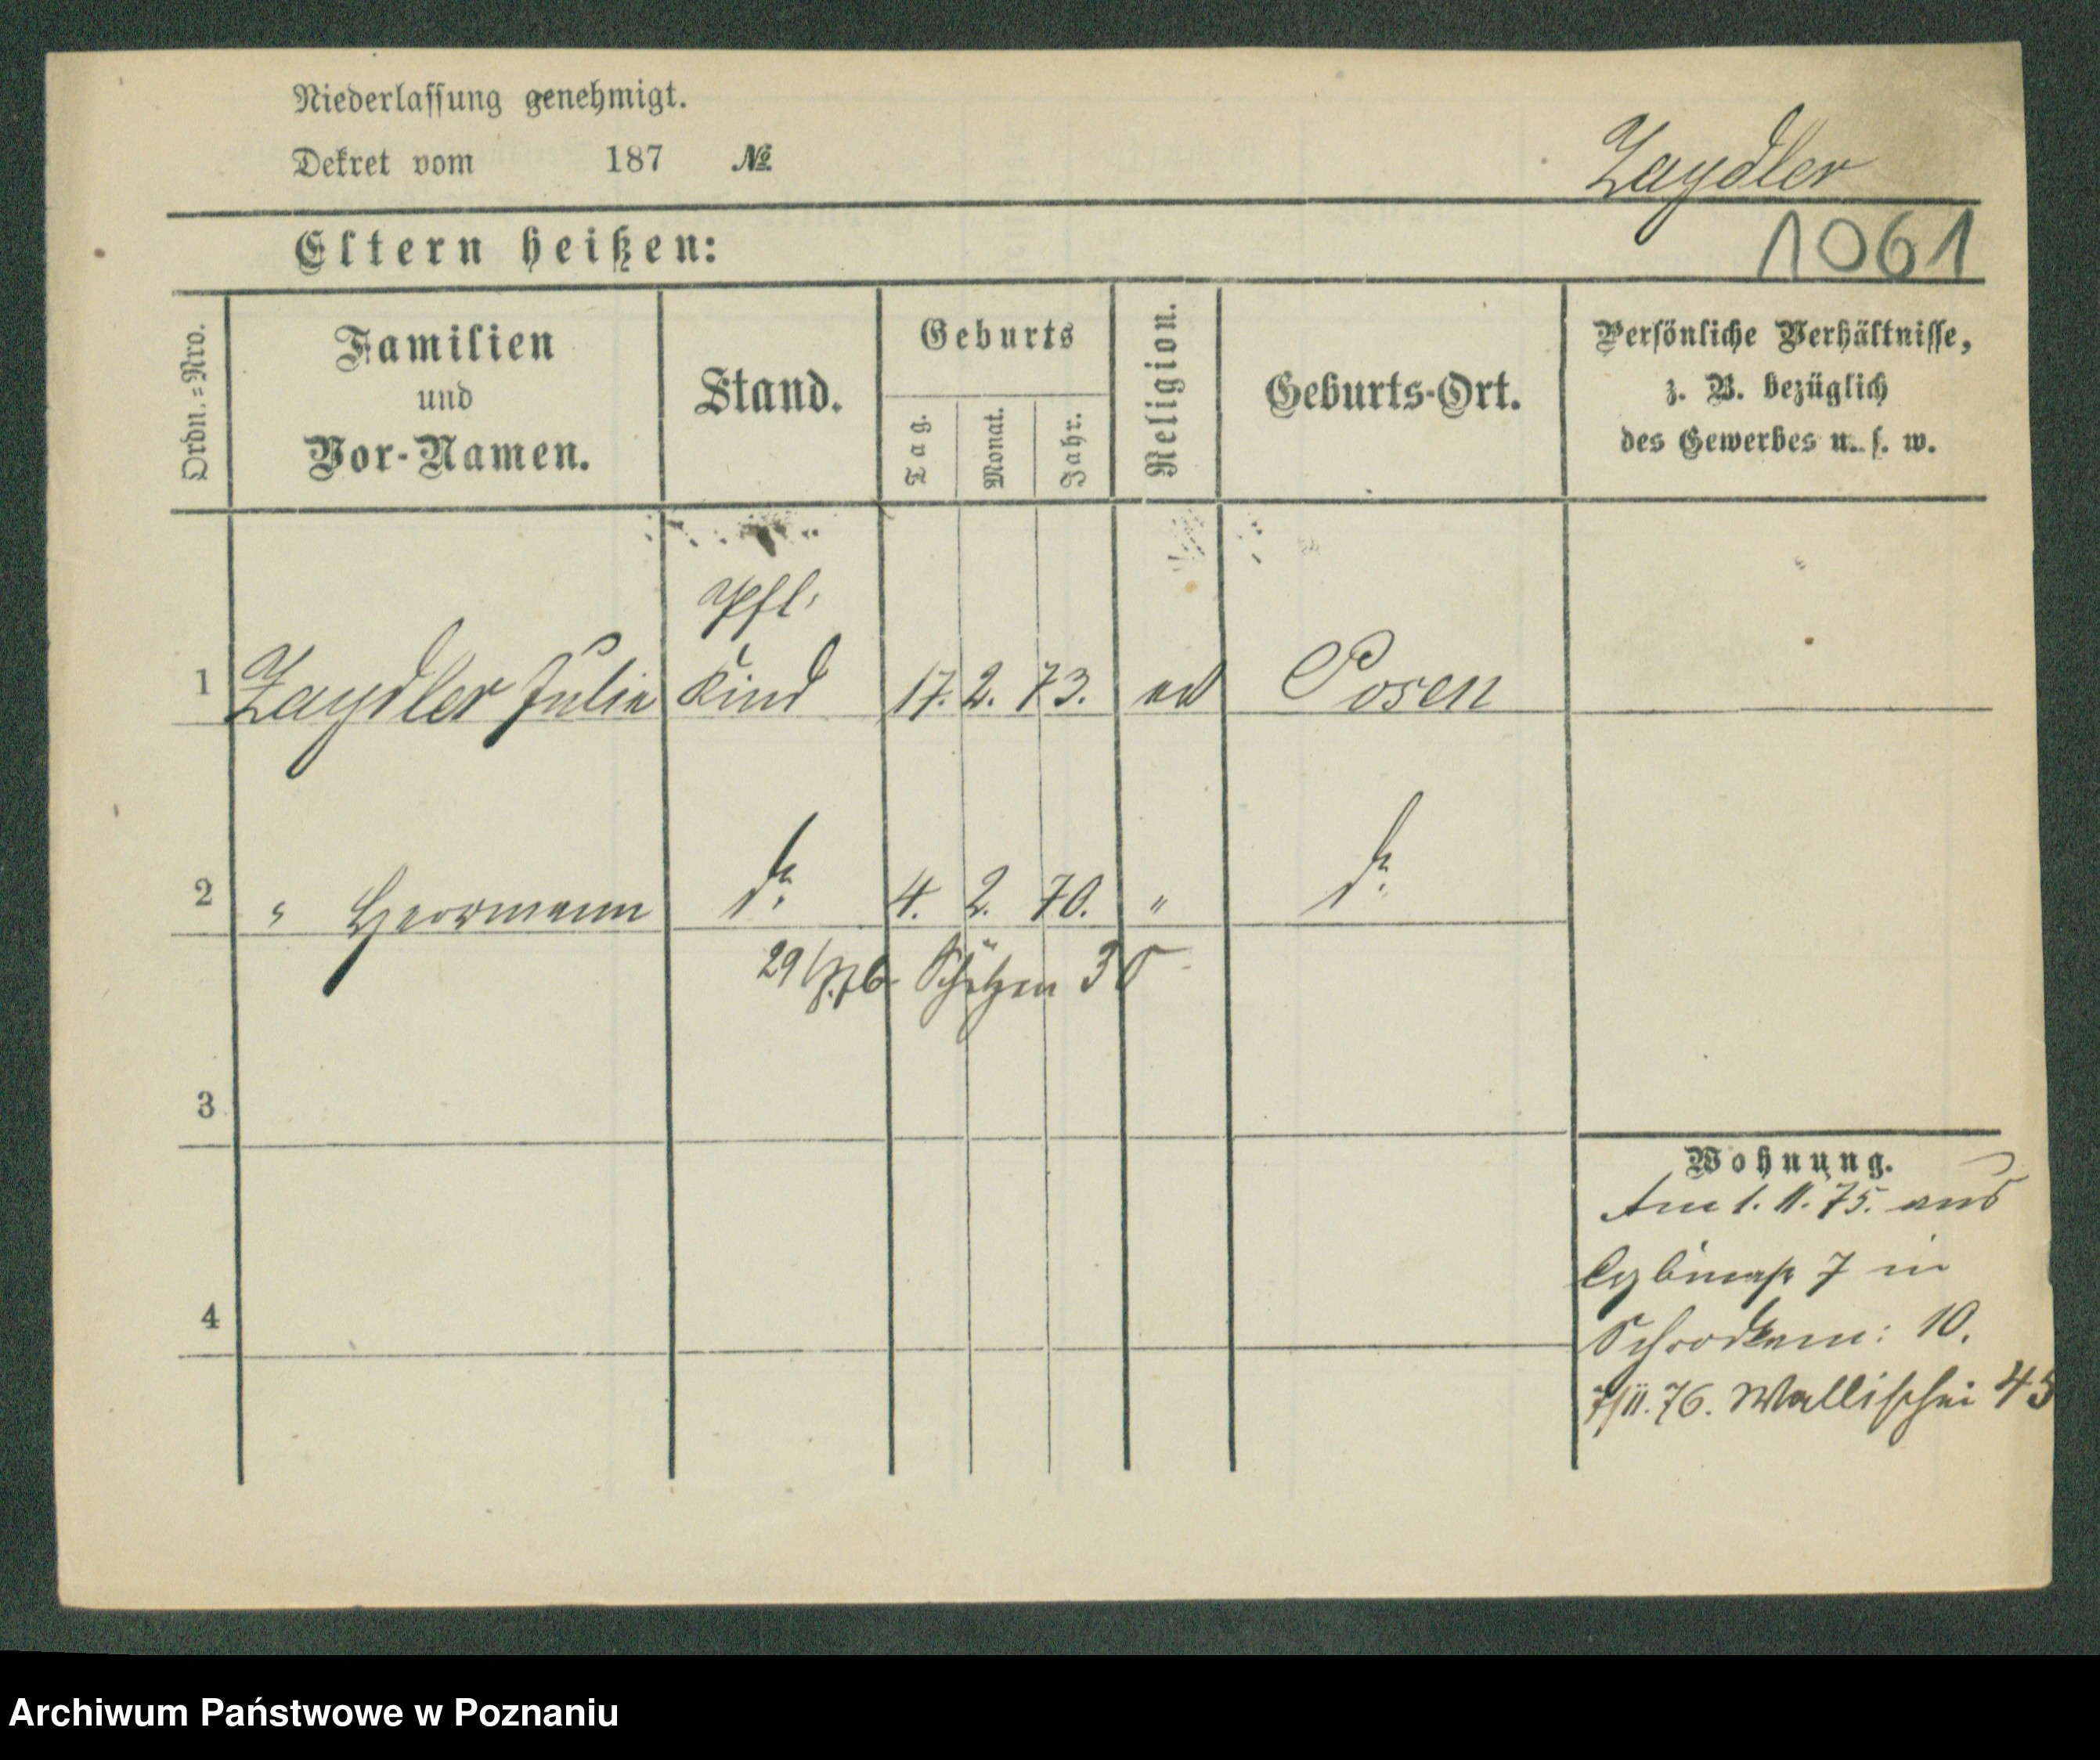 Niederlassung genehmigt.
Dekret vom 187 №
Zaydler
Eltern heißen:
1061
Ordn.=Nro.
Familien
und
Vor-Namen.
Stand.
Geburts
Tag.
Monat.
Jahr.
Religion.
Geburts-Ort.
Persönliche Verhältnisse,
z. B. bezüglich
des Gewerbes u. s. w.
Pfl.
1 Zaydler Julie Kind 17. 2. 73. ev Posen
2 " Herrmann do 4. 2. 70. " do
29 Schützen
3
Wohnung.
Am 1. 11. 75. aus
Cybinastr 7 in
Schrodkam: 10.
4
7/11. 76. Wallischei 45
Archiwum Państwowe w Poznaniu